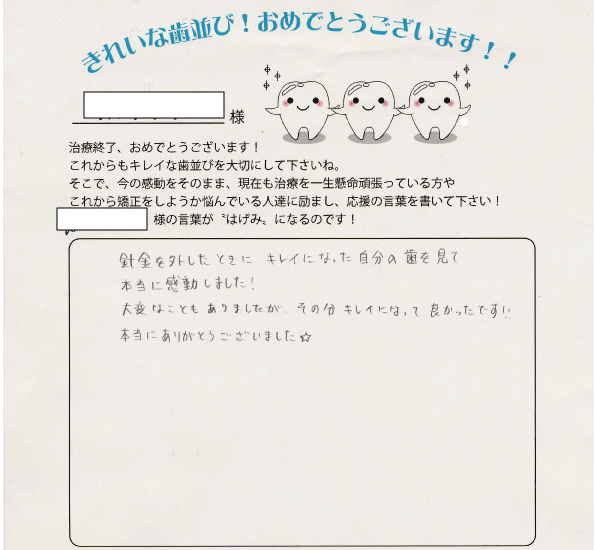 きれいな歯並び！おめでとうございます！！
様
治療終了、おめでとうございます！
これからもキレイな歯並びを大切にして下さいね。
そこで、今の感動をそのまま、現在も治療を一生懸命頑張っている方や
これから矯正をしようか悩んでいる人達に励まし、応援の言葉を書いて下さい！
様の言葉が〝はげみ〟になるのです！
針金を外したときに キレイになった自分の歯を見て
本当に感動しました！
大変なこともありましたが、その分キレイになって良かったです!!
本当にありがとうございました☆